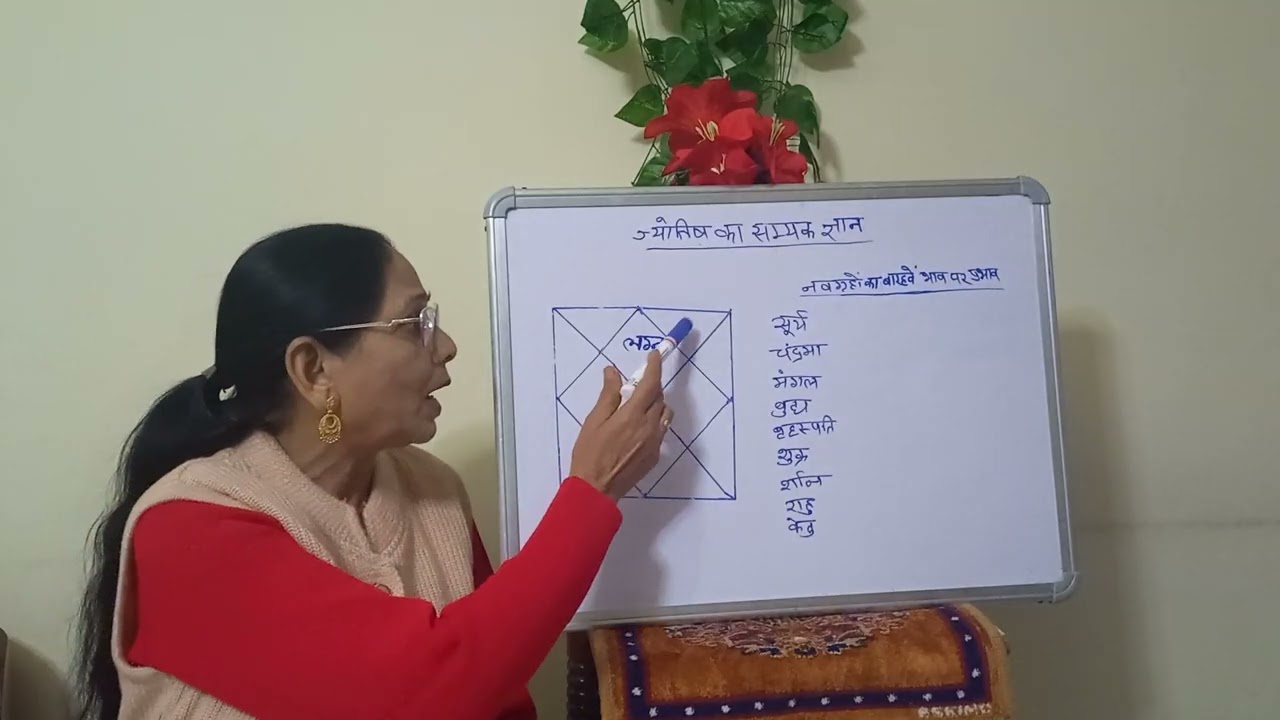 ज्योतिष का सम्यक ज्ञान
नवग्रहों का बारहवें भाव पर प्रभाव
लग्न
सूर्य
चंद्रमा
मंगल
बुध
बृहस्पति
शुक्र
शनि
राहु
केतु